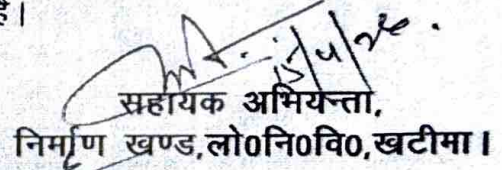 है।
15/4/26.
सहायक अभियन्ता,
निर्माण खण्ड,लो0नि0वि0,खटीमा।